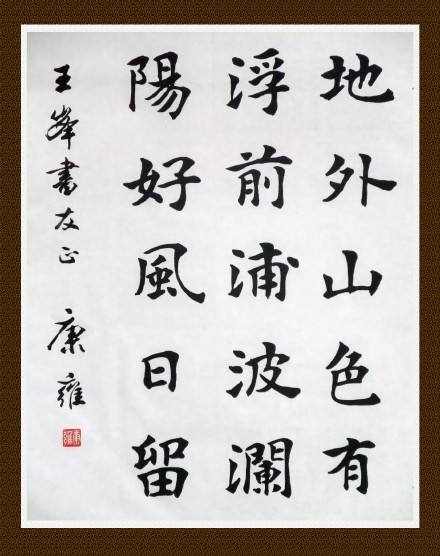 地外山色有
浮前浦波瀾
陽好風日留
王峰書友正
康雍
康雍